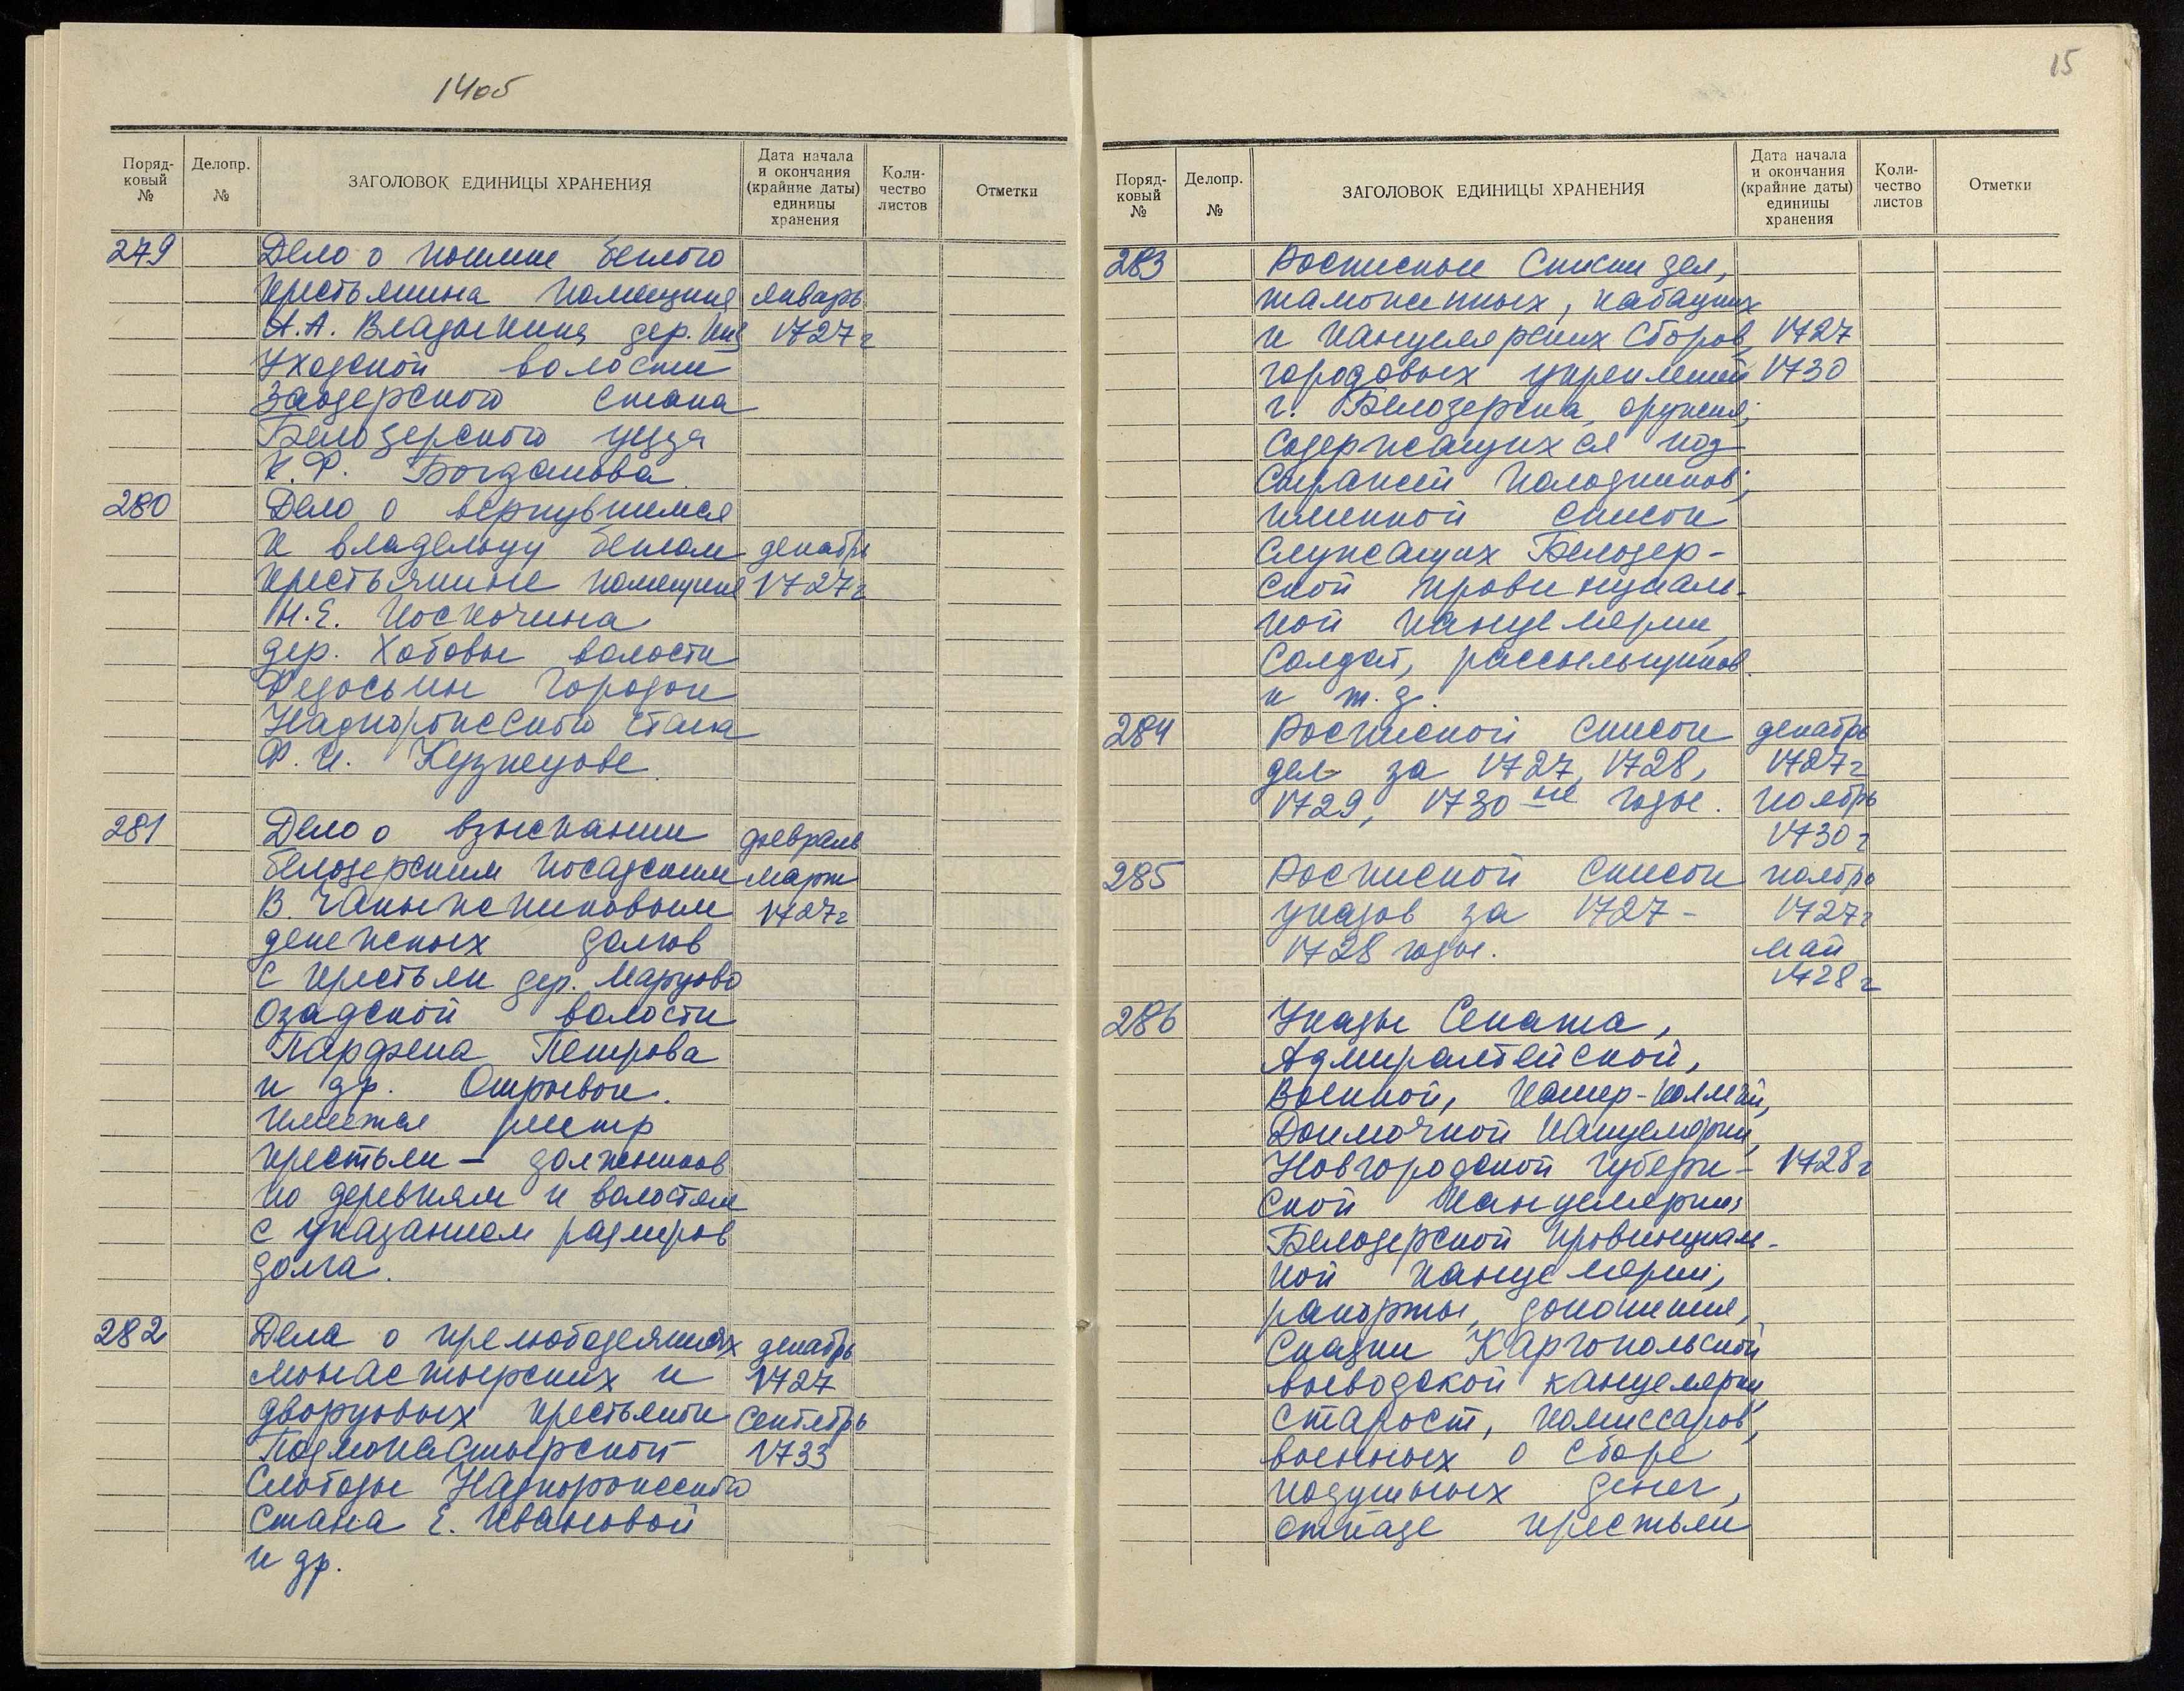 14об
Поряд-
ковый
№
Делопр.
№
ЗАГОЛОВОК ЕДИНИЦЫ ХРАНЕНИЯ
Дата начала
и окончания
(крайние даты)
единицы
хранения
Коли-
чество
листов
Отметки
279 Дело о поимке беглого
крестьянина помещика январь
А.А. Владыкина дер. 1727 г
Уходской волости
Заозерского стана
Белозерского уезда
К.Ф. Богданова.
280 Дело о вернувшимся
к владельцу беглом декабрь
крестьянине помещика 1727 г
Н.Е. Поскочина
дер. Хобовы волости
Федосьин городок
Надпорожского стана
Ф.И. Кузнецове.
281 Дело о взыскании февраль
белозерским посадским март
В. Чапыжниковым 1727 г
денежных долгов
с крестьян дер. Марцово
Озадской волости
Парфена Петрова
и др. Отрывок.
Имеется реестр
крестьян – должников
по деревням и волостям
с указанием размеров
долга.
282 Дела о прелюбодеяниях декабрь
монастырских и 1727
дворцовых крестьянок сентябрь
Подмонастырской 1733
слободы Надпорожского
стана Е. Ивановой
и др.
15
Поряд-
ковый
№
Делопр.
№
ЗАГОЛОВОК ЕДИНИЦЫ ХРАНЕНИЯ
Дата начала
и окончания
(крайние даты)
единицы
хранения
Коли-
чество
листов
Отметки
283 Росписные списки дел,
таможенных, кабацких
и канцелярских сборов, 1727
городовых укреплений 1730
г. Белозерска, оружия;
содержащихся под
стражей колодников;
именной список
служащих Белозер-
ской провинциаль-
ной канцелярии,
солдат, рассыльщиков
и т.д.
284 Росписной список декабрь
дел за 1727, 1728, 1727 г
1729, 1730 ые годы. ноябрь
1730 г
285 Росписной список ноябрь
указов за 1727 – 1727 г
1728 годы. май
1728 г
286 Указы Сената,
Адмиралтейской,
Военной, Камер-коллегий,
Доимочной канцелярии,
Новгородской губерн- 1728 г
ской канцелярии;
Белозерской провинциаль-
ной канцелярии;
рапорты, доношения,
сказки Каргопольской
воеводской канцелярии,
старост, комиссаров,
военных о сборе
подушных денег,
отпаде крестьян